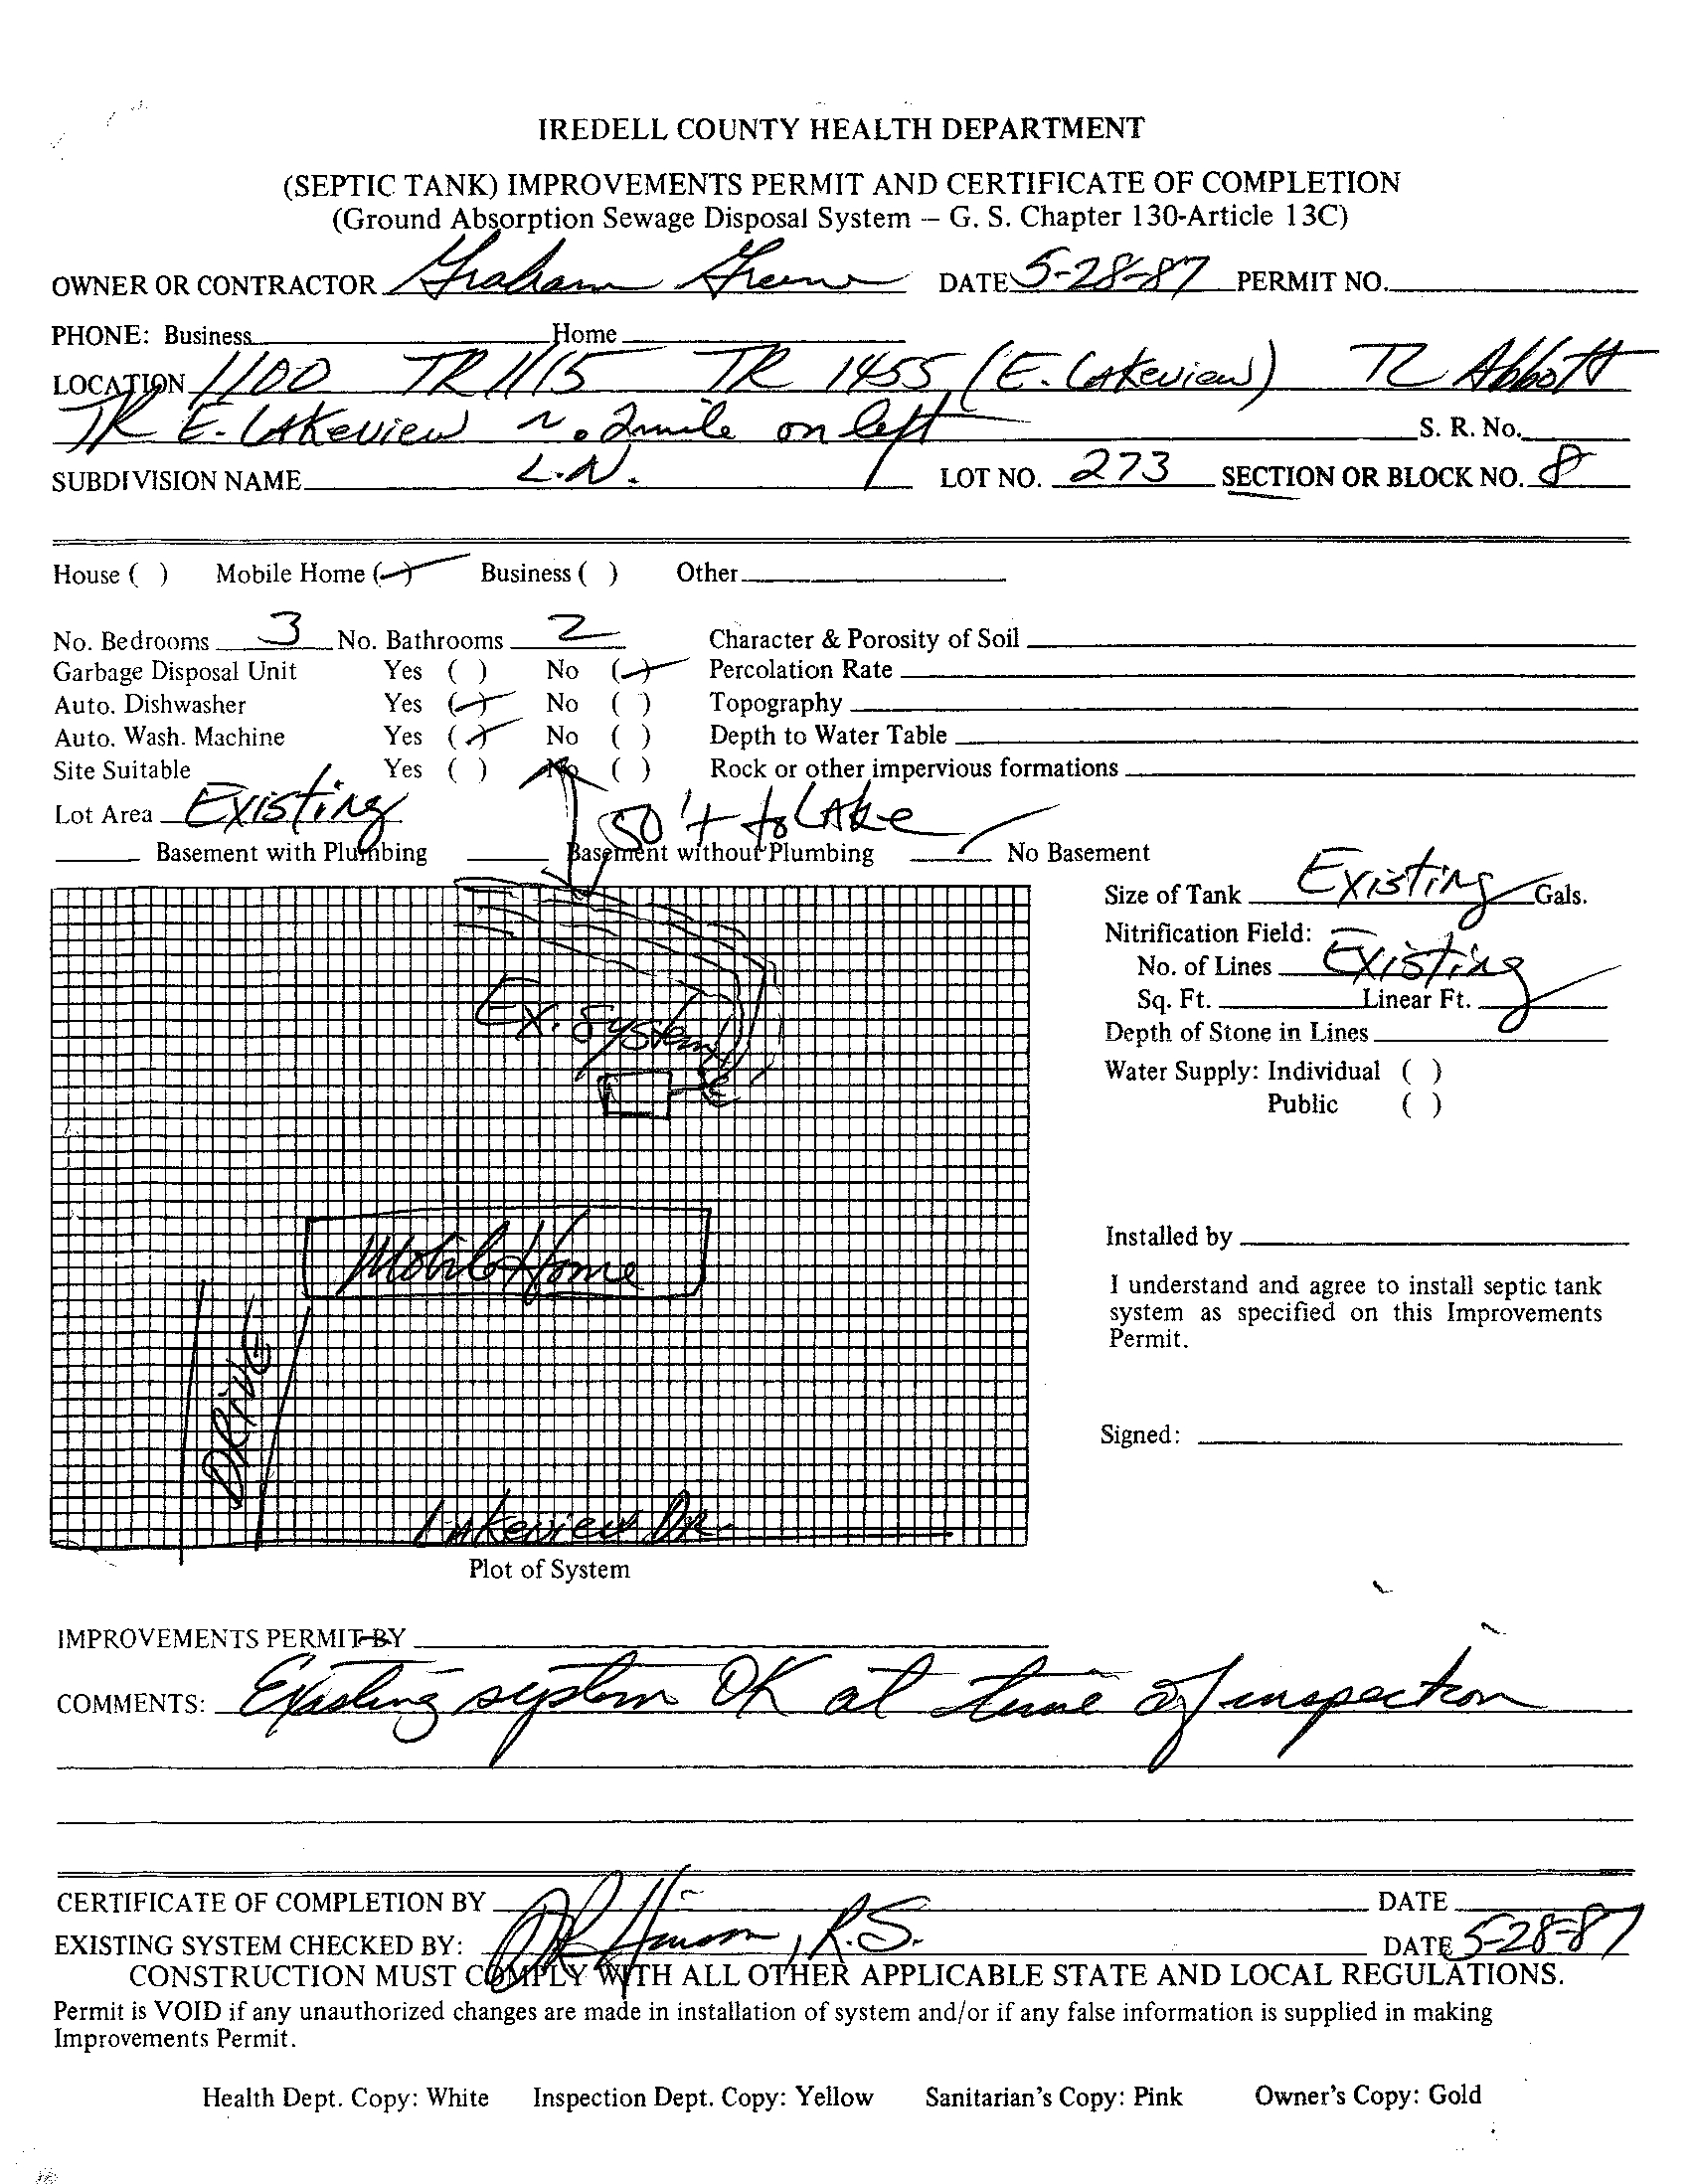 IREDELL COUNTY HEALTH DEPARTMENT
(SEPTIC TANK) IMPROVEMENTS PERMIT AND CERTIFICATE OF COMPLETION
(Ground Absorption Sewage Disposal System – G. S. Chapter 130-Article 13C)
OWNER OR CONTRACTOR Graham Greene DATE 5-28-87 PERMIT NO.
PHONE: Business Home
LOCATION 1100 TR 1115 TR 1455 (E. Lakeview) TL Abbott
TR E. Lakeview ~ .2 mile on left S. R. No.
SUBDIVISION NAME L.N. LOT NO. 273 SECTION OR BLOCK NO. 8
House ( ) Mobile Home (✓) Business ( ) Other
No. Bedrooms 3 No. Bathrooms 2 Character & Porosity of Soil
Garbage Disposal Unit Yes ( ) No (✓) Percolation Rate
Auto. Dishwasher Yes (✓) No ( ) Topography
Auto. Wash. Machine Yes (✓) No ( ) Depth to Water Table
Site Suitable Yes ( ) No ( ) Rock or other impervious formations
Lot Area Existing 50'± to Lake
Basement with Plumbing Basement without Plumbing ✓ No Basement
Size of Tank Existing Gals.
Nitrification Field:
No. of Lines Existing
Sq. Ft. Linear Ft.
Depth of Stone in Lines
Water Supply: Individual ( )
Public ( )
Ex. System
Mobile Home
DRIVE
Lakeview DR.
Plot of System
Installed by
I understand and agree to install septic tank
system as specified on this Improvements
Permit.
Signed:
IMPROVEMENTS PERMIT BY
COMMENTS: Existing system OK at time of inspection
CERTIFICATE OF COMPLETION BY DATE
EXISTING SYSTEM CHECKED BY: Hinson, R.S. DATE 5-28-87
CONSTRUCTION MUST COMPLY WITH ALL OTHER APPLICABLE STATE AND LOCAL REGULATIONS.
Permit is VOID if any unauthorized changes are made in installation of system and/or if any false information is supplied in making
Improvements Permit.
Health Dept. Copy: White Inspection Dept. Copy: Yellow Sanitarian's Copy: Pink Owner's Copy: Gold